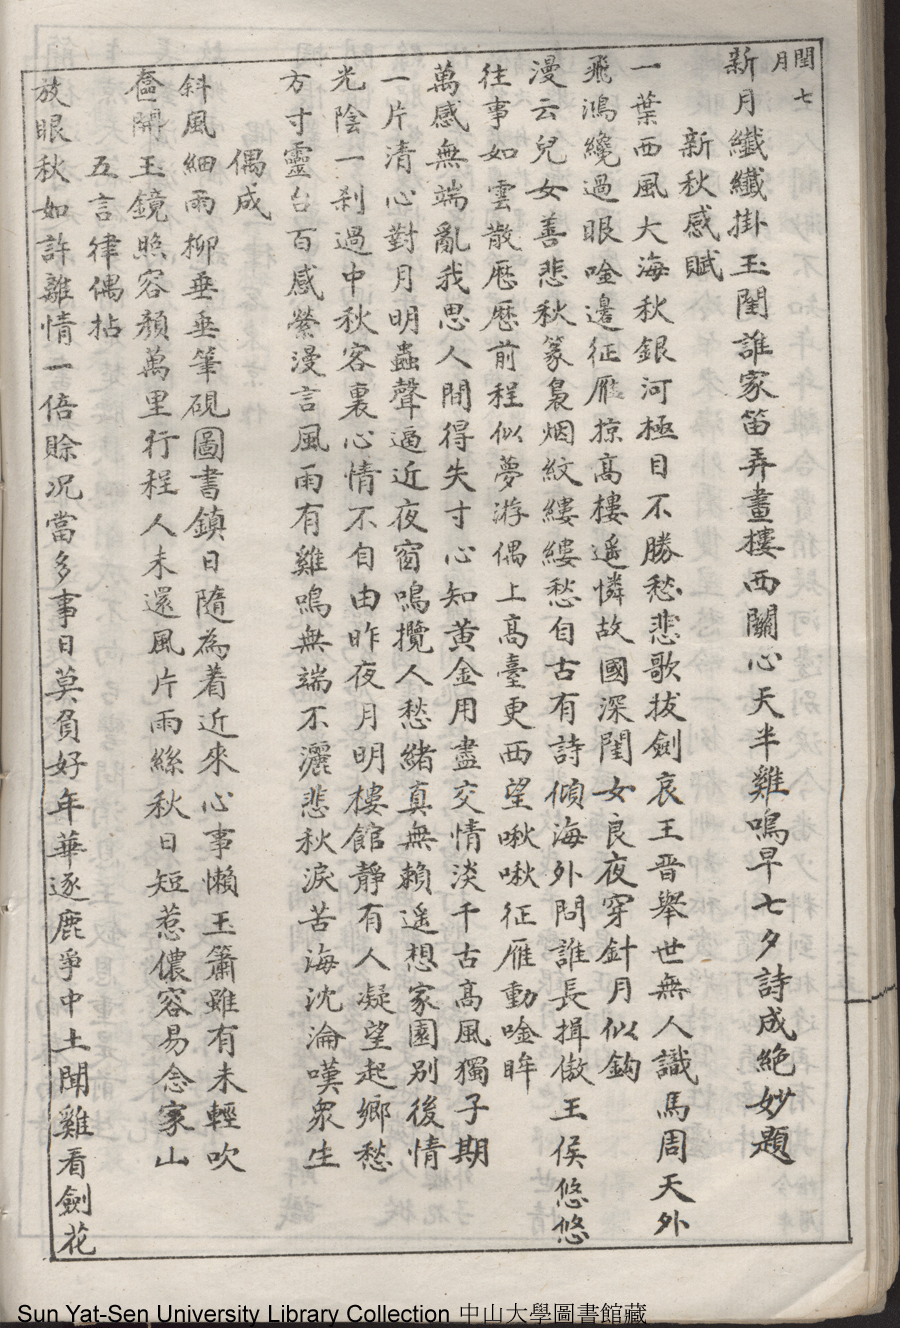 閏七
月
新月纖纖掛玉閨誰家笛弄畫樓西關心天半雞鳴早七夕詩成絶妙題
新秋感賦
一葉西風大海秋銀河極目不勝愁悲歌拔劍哀王晋舉世無人識馬周天外
飛鴻纔過眼唫邊征雁掠高樓遥憐故國深閨女良夜穿針月似鈎
漫云兒女善悲秋篆裊烟紋縷縷愁自古有詩傾海外問誰長揖傲王侯悠悠
往事如雲散歴歴前程似夢游偶上高臺更西望啾啾征雁動唫眸
萬感無端亂我思人間得失寸心知黄金用盡交情淡千古高風獨子期
一片清心對月明蟲聲逼近夜窗鳴攬人愁緒真無賴遥想家園别後情
光陰一刹過中秋客裏心情不自由昨夜月明樓館靜有人凝望起鄉愁
方寸靈台百感縈漫言風雨有雞鳴無端不灑悲秋淚苦海沈淪嘆衆生
偶成
斜風細雨柳垂垂筆硯圖書鎮日隨為着近來心事懶玉簫雖有未輕吹
奩開玉鏡照容顏萬里行程人未還風片雨絲秋日短惹儂容易念家山
五言律偶拈
放眼秋如許離情一倍賒况當多事日莫負好年華逐鹿爭中土聞雞看劍花
Sun Yat-Sen University Library Collection 中山大學圖書館藏